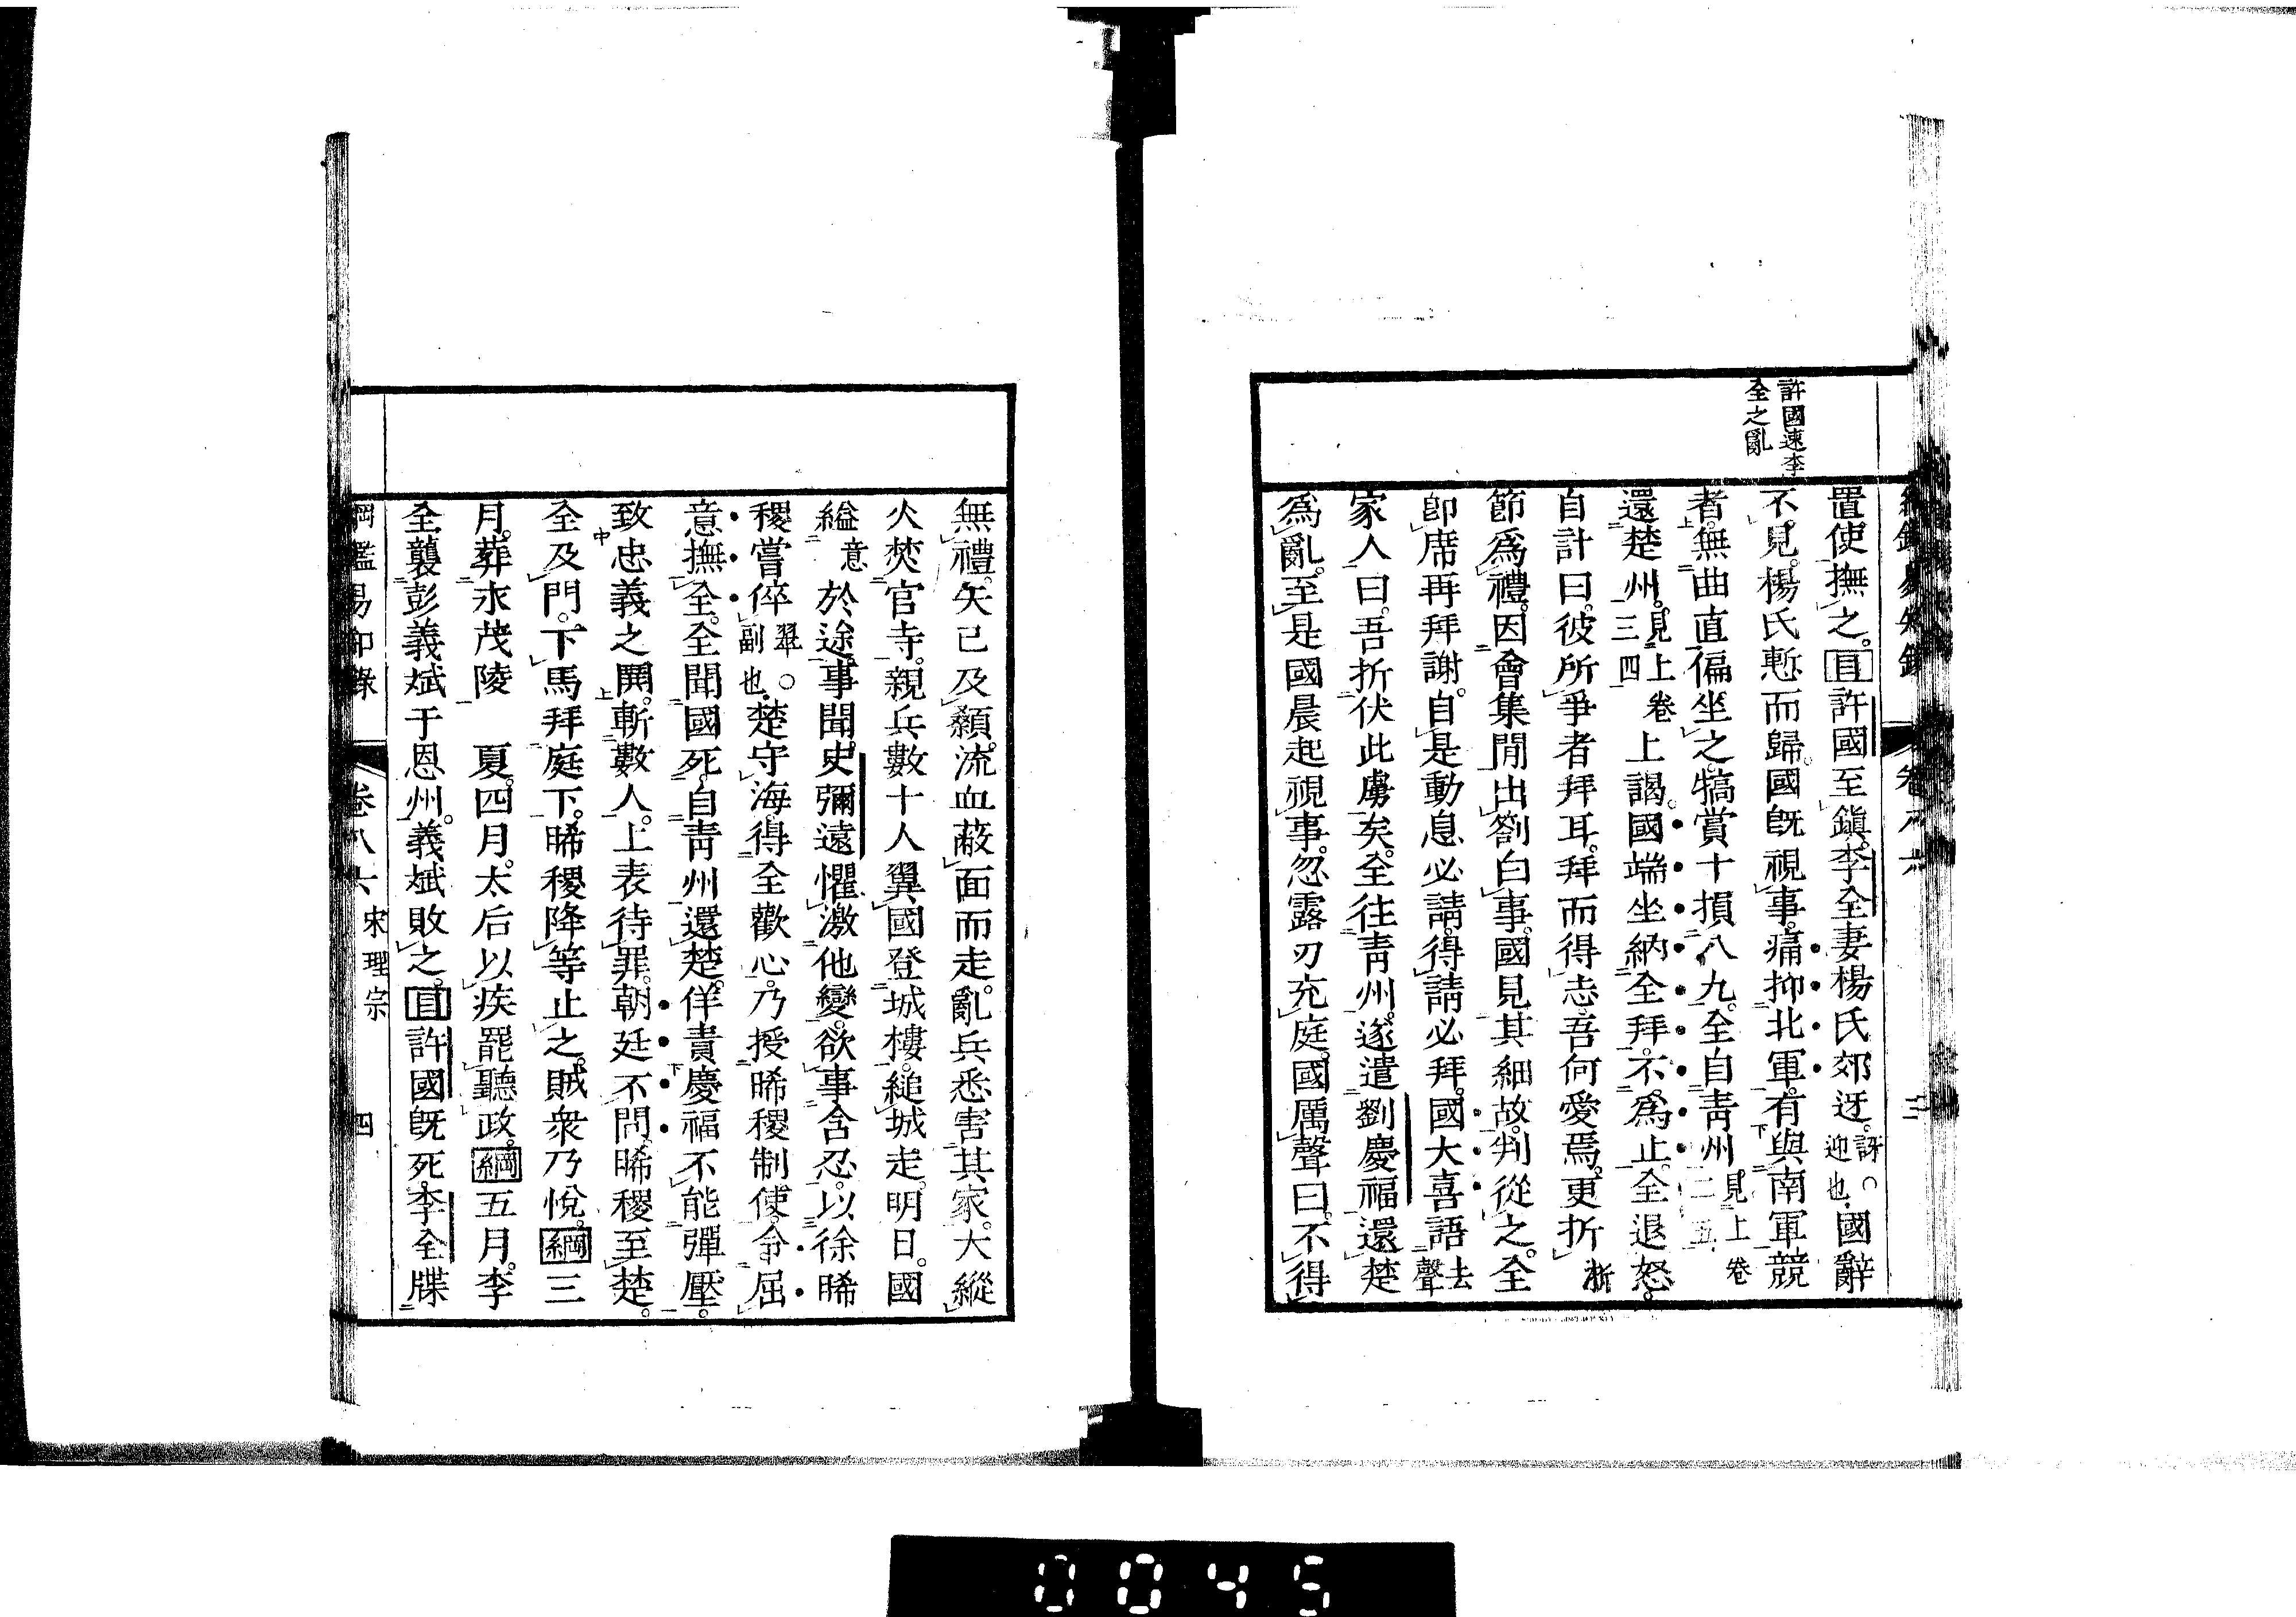 許國速李
全之亂
置使撫之。目許國至鎮。李全妻楊氏郊迓。訝○迎也國辭
不見。楊氏慙而歸。國旣視事。痛抑北軍。有與南軍競
者。無曲直偏坐之。犒賞十損八九。全自靑州見上卷二五
還楚州。見上卷三四上謁。國端坐納全拜。不爲止。全退怒。
自計曰。彼所爭者拜耳。拜而得志。吾何愛焉。更折浙
節爲禮。因會集閒出劄白事。國見其細故。判從之。全
卽席再拜謝。自是動息必請。得請必拜。國大喜語去聲
家人曰。吾折伏此虜矣。全往靑州。遂遣劉慶福還楚
爲亂。至是國晨起視事。忽露刃充庭。國厲聲曰。不得
無禮。矢已及顙。流血蔽面而走。亂兵悉害其家。大縱
火焚官寺。親兵數十人翼國登城樓。縋城走。明日。國
縊意於途。事聞。史彌遠懼激他變。欲事含忍。以徐晞
稷嘗倅翠○副也楚守海。得全歡心。乃授晞稷制使。令屈
意撫全。全聞國死。自靑州還楚。佯責慶福不能彈壓。
致忠義之鬨。斬數人。上表待罪。朝廷不問。晞稷至楚。
全及門。下馬拜庭下。晞稷降等止之。賊衆乃悅。綱三
月。葬永茂陵 夏。四月。太后以疾罷聽政。綱五月。李
全襲彭義斌于恩州。義斌敗之。目許國旣死。李全牒
綱鑑易知錄 卷八六 宋理宗 四
0045